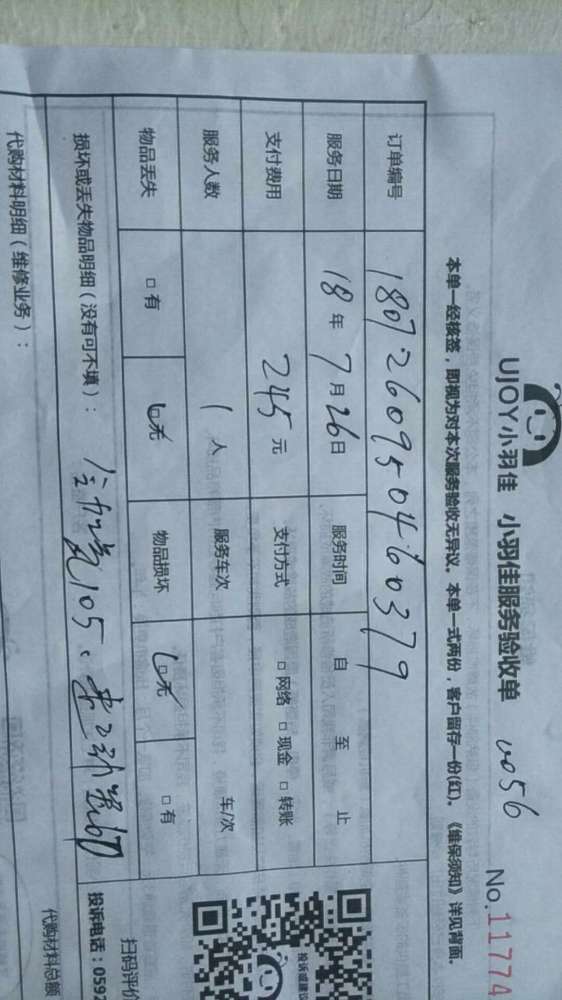 UJOY小羽佳 小羽佳服务验收单 0056 No.11774
本单一经核签，即视为对本次服务验收无异议。本单一式两份，客户留存一份(红)。《维保须知》详见背面。
订单编号 1807260950460379
服务日期 18年7月26日 服务时间 自 至 止
支付费用 245元 支付方式 □网络 □现金 □转账
服务人数 1人 服务车次 车/次
物品丢失 □有 □无 物品损坏 □无 □有
损坏或丢失物品明细（没有可不填）： 105、
代购材料明细（维修业务）： 代购材料总额
投诉或建议
扫码评价
投诉电话：0592